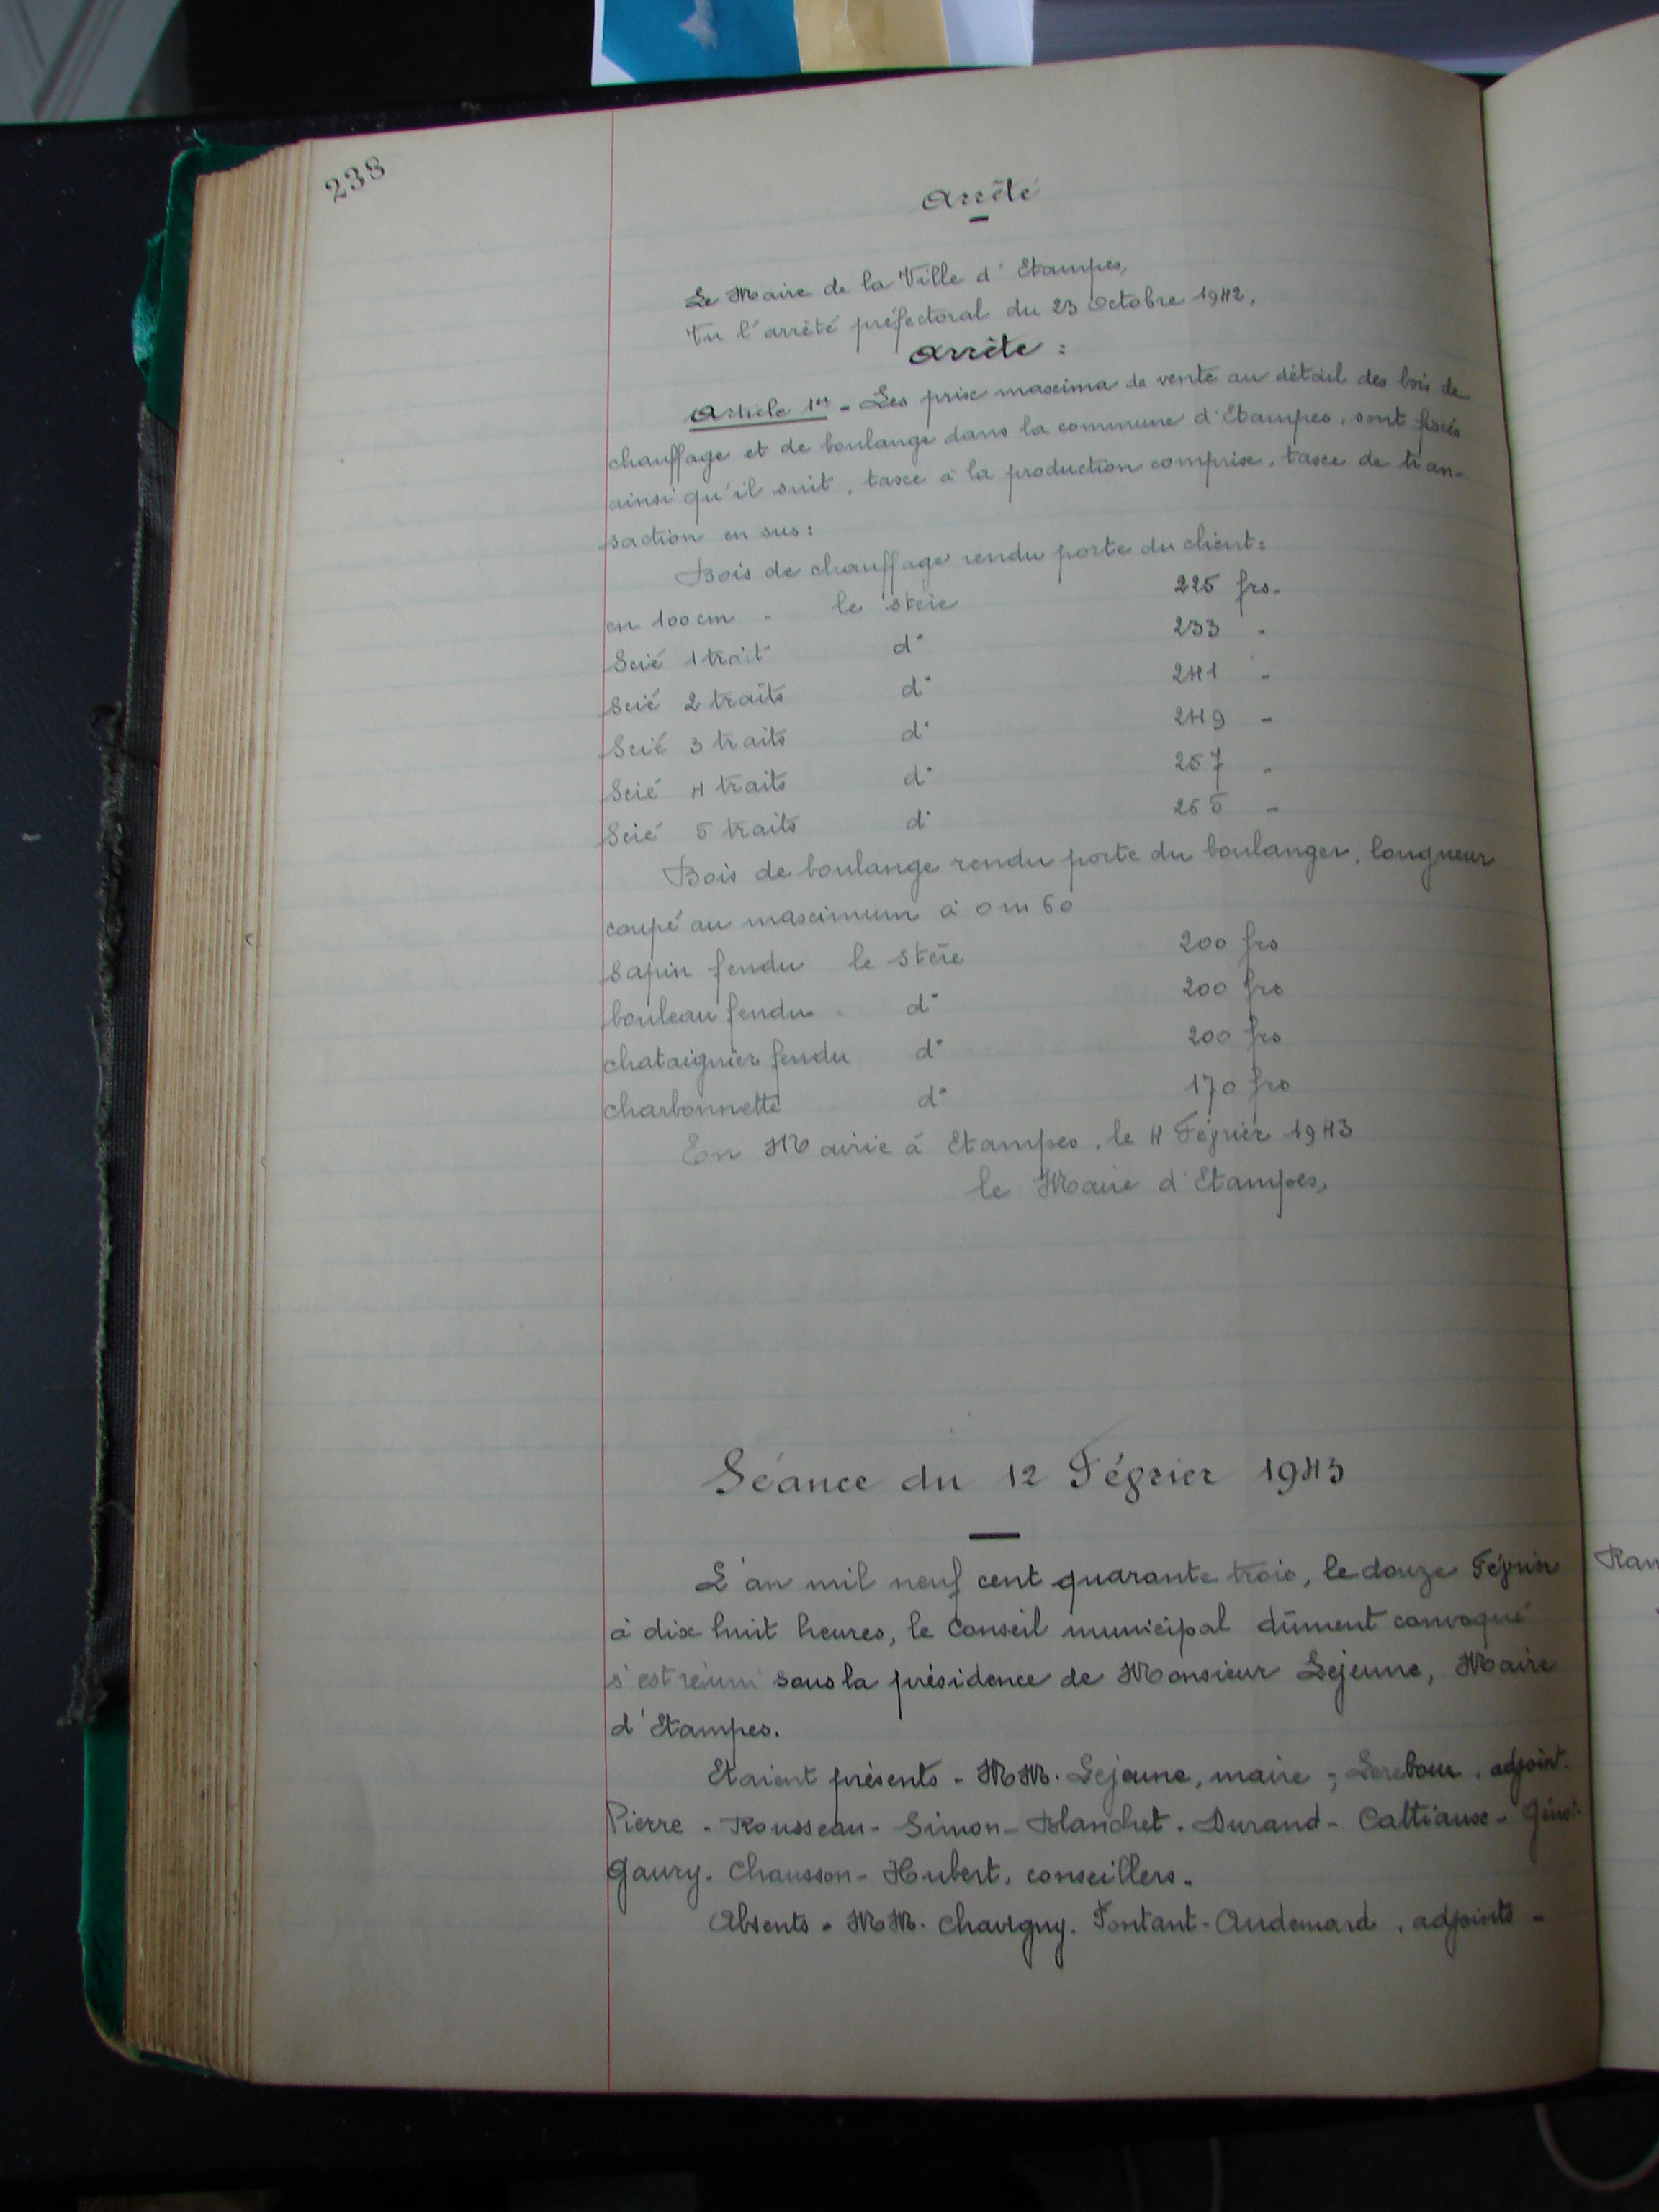 238
Arrêté
Le Maire de la Ville d'Etampes,
Vu l'arrêté préfectoral du 23 Octobre 1942,
Arrête :
Article 1er - Les prix maxima de vente au détail des bois de
chauffage et de boulange dans la commune d'Etampes, sont fixés
ainsi qu'il suit, taxe à la production comprise, taxe de tran-
saction en sus :
Bois de chauffage rendu porte du client :
en 100 cm - le stère 225 frs -
Scié 1 trait d° 233 -
Scié 2 traits d° 241 -
Scié 3 traits d° 249 -
Scié 4 traits d° 257 -
Scié 5 traits d° 265 -
Bois de boulange rendu porte du boulanger, longueur
coupé au maximum à 0 m 60
Sapin fendu le Stère 200 frs
bouleau fendu d° 200 frs
chataignier fendu d° 200 frs
charbonnette d° 170 frs
En Mairie à Etampes, le 4 Février 1943
le Maire d'Etampes,
Séance du 12 Février 1943
L'an mil neuf cent quarante trois, le douze Février
à dix huit heures, le Conseil municipal dûment convoqué
s'est réuni sous la présidence de Monsieur Lejeune, Maire
d'Etampes.
Etaient présents - MM. Lejeune, maire ; Lerebour, adjoint.
Pierre - Rousseau - Simon - Blanchet - Durand - Cattiaux -
Gaury - Chausson - Hubert, conseillers -
Absents - MM. Chavigny - Fontant - Audemard, adjoints -